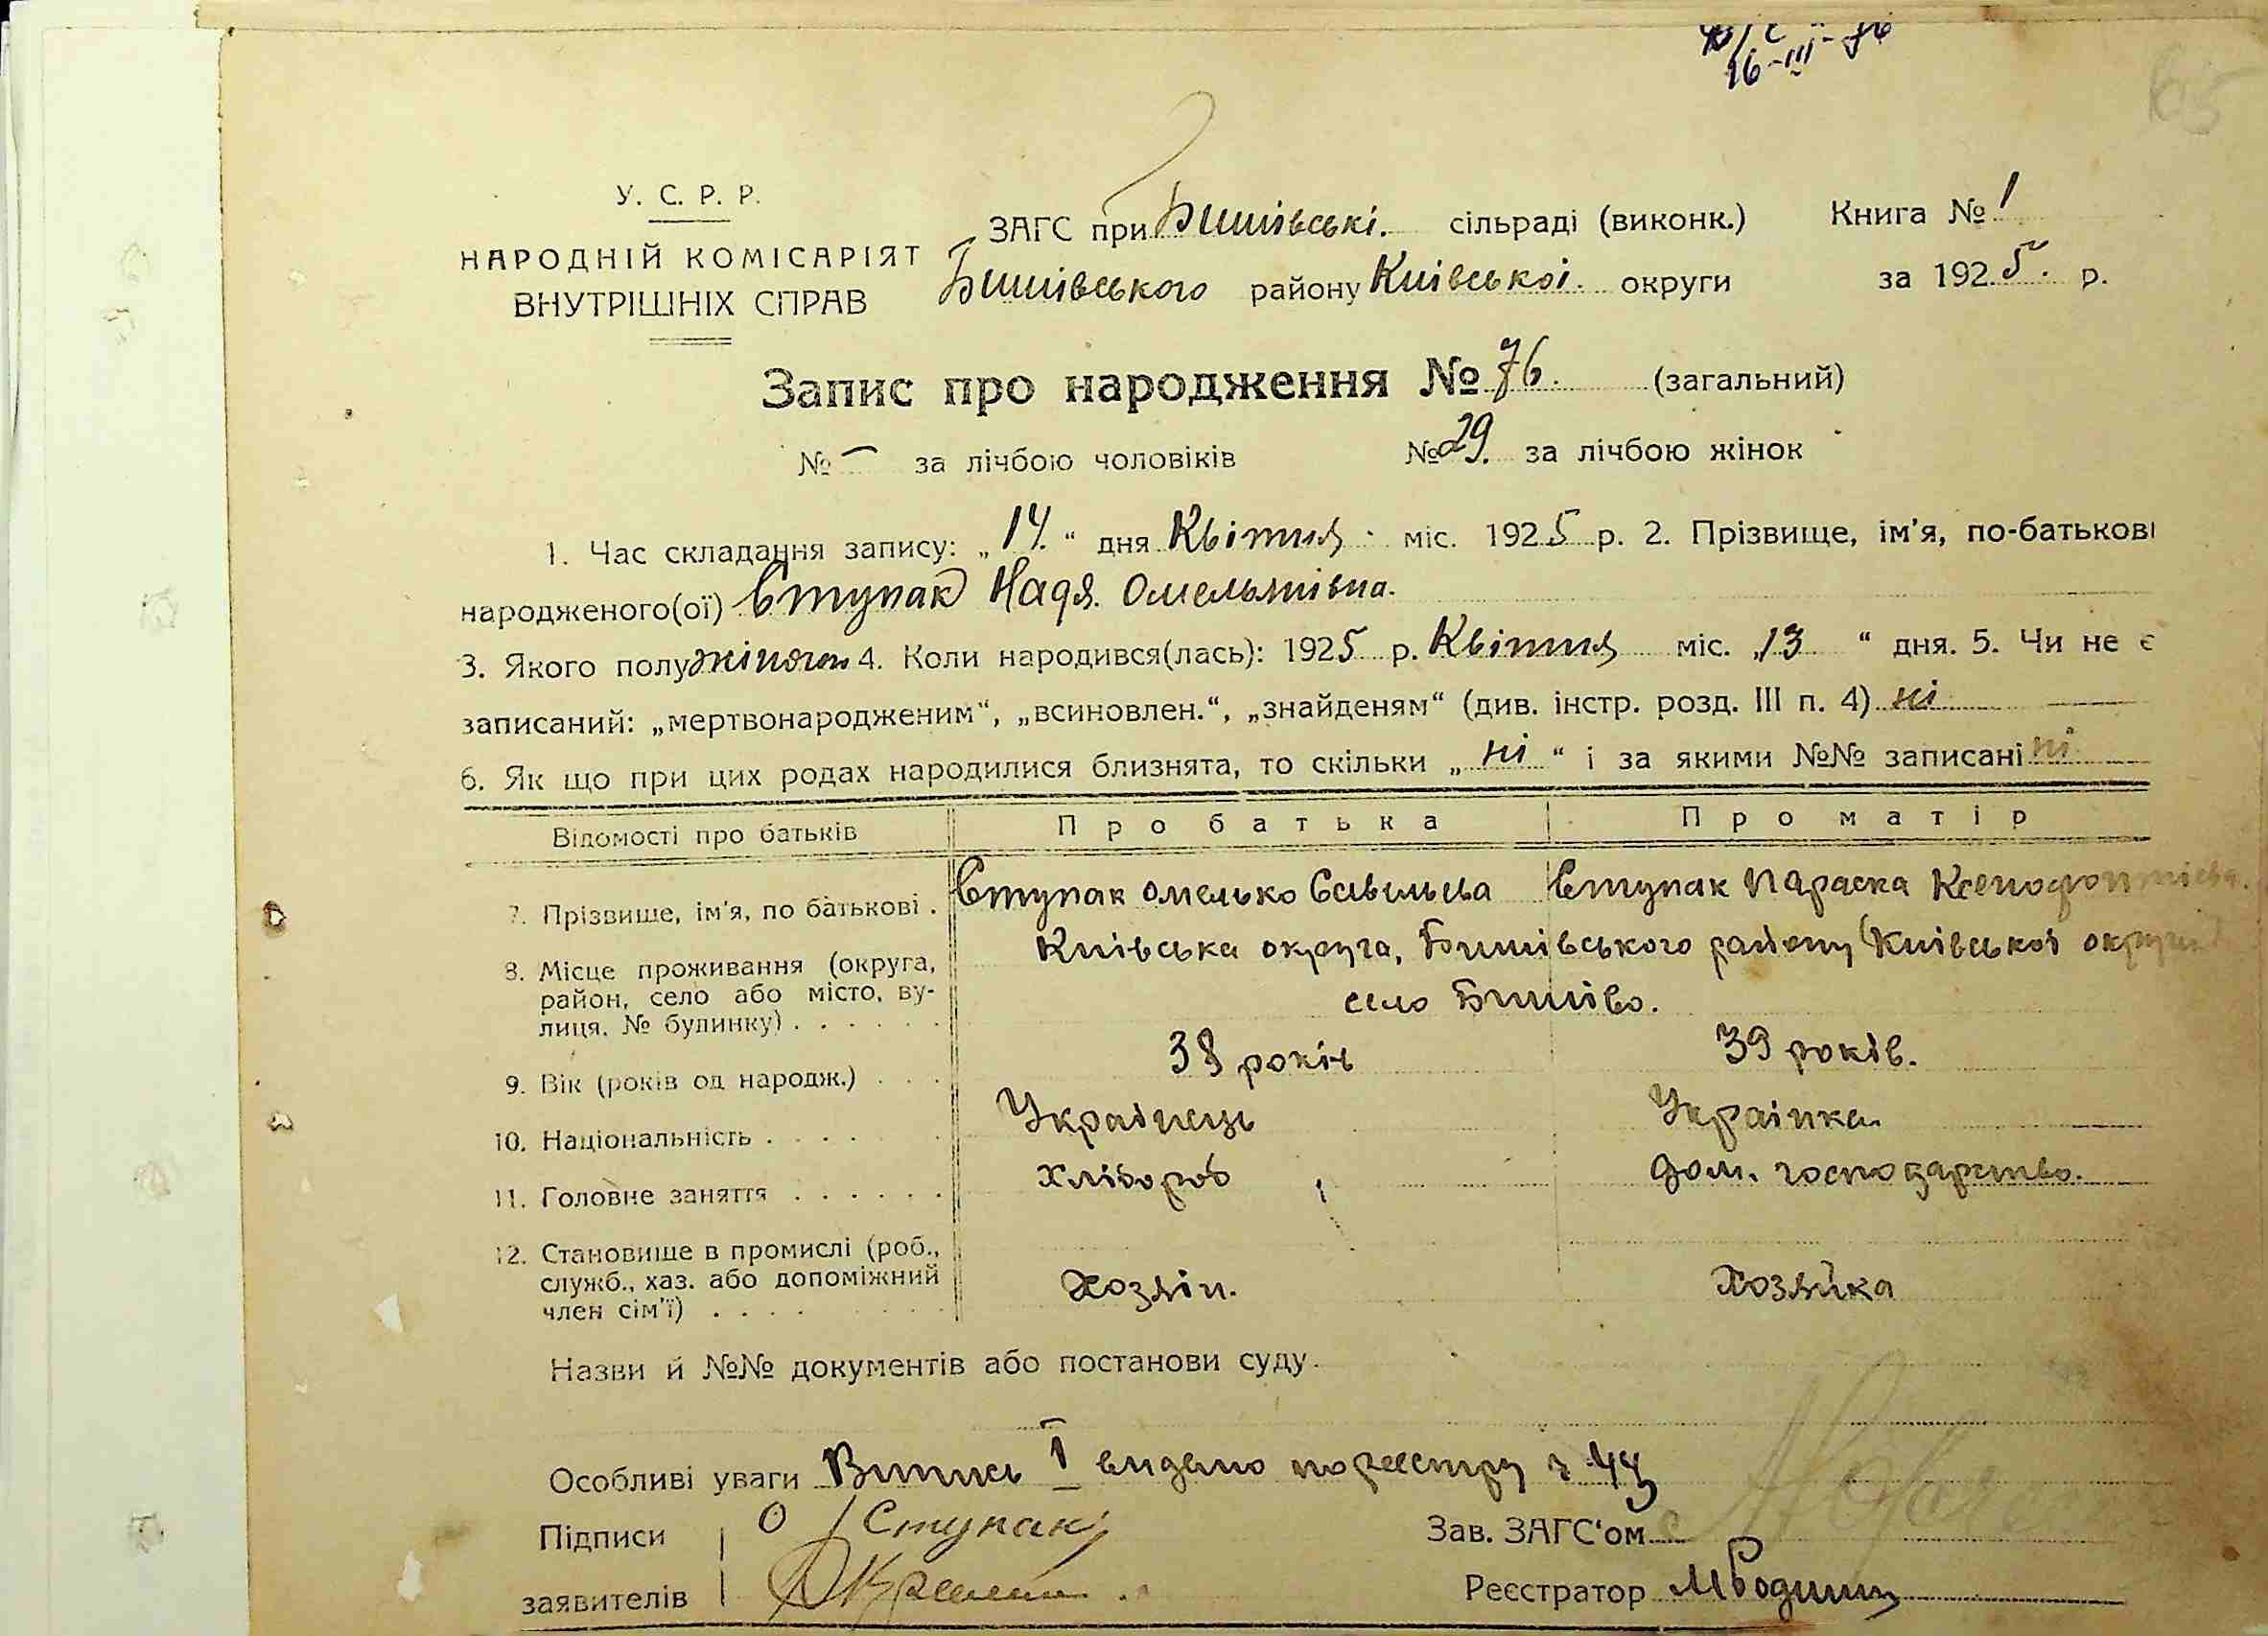 16-III-76
65
У. С. Р. Р.
НАРОДНІЙ КОМІСАРІЯТ
ВНУТРІШНІХ СПРАВ
ЗАГС при Бишівські. сільраді (виконк.) Книга № 1
Бишівського району Київської. округи за 1925. р.
Запис про народження № 76. (загальний)
№ — за лічбою чоловіків № 29. за лічбою жінок
1. Час складання запису: „14.“ дня Квітня міс. 1925 р. 2. Прізвище, ім'я, по-батькові
народженого(ої) Ступак Надя. Омельянівна.
3. Якого полу жіночого 4. Коли народився(лась): 1925 р. Квітня міс. „13“ дня. 5. Чи не є
записаний: „мертвонародженим“, „всиновлен.“, „знайденям“ (див. інстр. розд. III п. 4) ні
6. Як що при цих родах народилися близнята, то скільки „ні“ і за якими №№ записані ні
Відомості про батьків Про батька Про матір
7. Прізвише, ім'я, по батькові . Ступак Омелько Ступак Параска Ксенофонтівна.
8. Місце проживання (округа, Київська округа, Бишівського району (Київської округи)
район, село або місто, ву- село Бишів
лиця, № будинку) . . . . . .
9. Вік (років од народж.) . . . 38 років 39 років.
10. Національність . . . . . Українець Українка
11. Головне заняття . . . . . . Хлібороб Дом. господарство.
12. Становище в промислі (роб.,
служб., хаз. або допоміжний Хозяїн. Хозяйка
член сім'ї) . . . .
Назви й №№ документів або постанови суду.
Особливі уваги Випись I видано по реестру
Підписи О Ступак Зав. ЗАГС'ом
заявителів Реєстратор